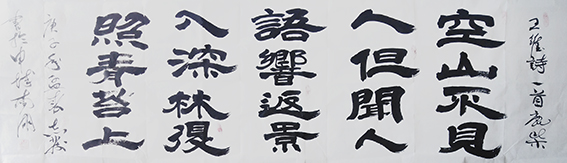 王維詩一首鹿柴
空山不見
人但聞人
語響返景
入深林復
照青苔上